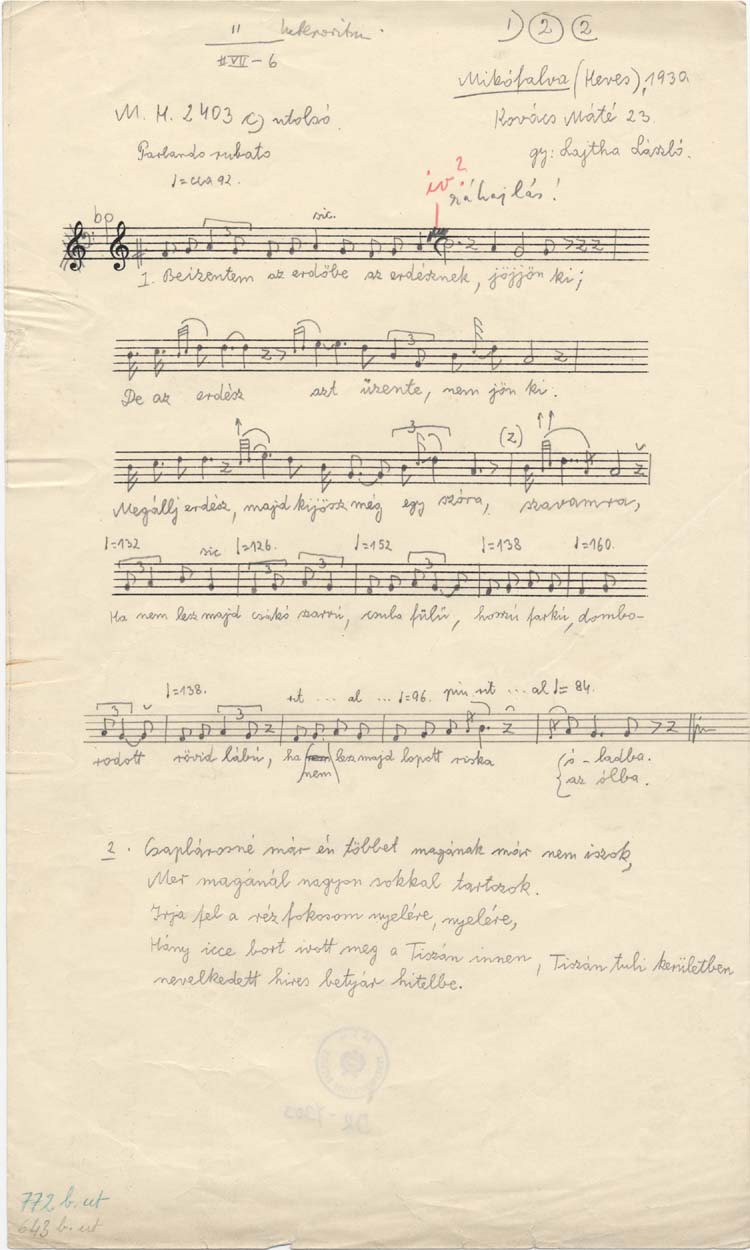 II
VII - 6
1) 2 2
Mikófalva (Heves), 1930
M. H. 2403 c) utolsó.
Kovács Máté 23.
Parlando rubato
gy: Lajtha László.
♩= cca 92.
ív?
ráhajlás!
bp
sic.
3
1. Beizentem az erdőbe az erdésznek, jöjjön ki;
3
De az erdész azt üzente, nem jön ki.
3
(z)
Megállj erdész, majd kijössz még egy szóra, szavamra,
♩=132 sic ♩=126. ♩=152 ♩=138 ♩=160.
3 3 3 3
Ha nem lesz majd csákó szarvú, csuba fülű, hosszú farkú, dombo-
♩=138. rit ... al ... ♩=96. più rit ... al ♩= 84.
3 3
rodott rövid lábú, ha (nem) lesz majd lopott riska ó - ladba.
nem az ólba.
2. Csaplárosné már én többet magának már nem iszok,
Mer magánál nagyon sokkal tartozok.
Irja fel a réz fokosom nyelére, nyelére,
Hány icce bort ivott meg a Tiszán innen, Tiszán tuli kerületben
nevelkedett hires betyár hitelbe.
772 b. ut
643 b. ut